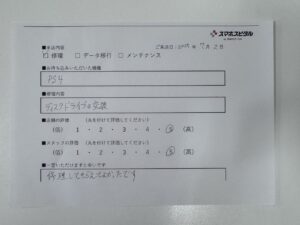 スマホスピタル
■来店内容
ご来店日:2025年 7月 2日
☑ 修理 □ データ移行 □ メンテナンス
■お持ち込みいただいた機種
PS4
■修理内容
ディスクドライブの交換
■店舗の評価 (丸を付けて評価してください)
(低) 1 ・ 2 ・ 3 ・ 4 ・ 5 (高)
■スタッフの評価 (丸を付けて評価してください)
(低) 1 ・ 2 ・ 3 ・ 4 ・ 5 (高)
■一言いただけますと幸いです
修理してもらえてよかったです